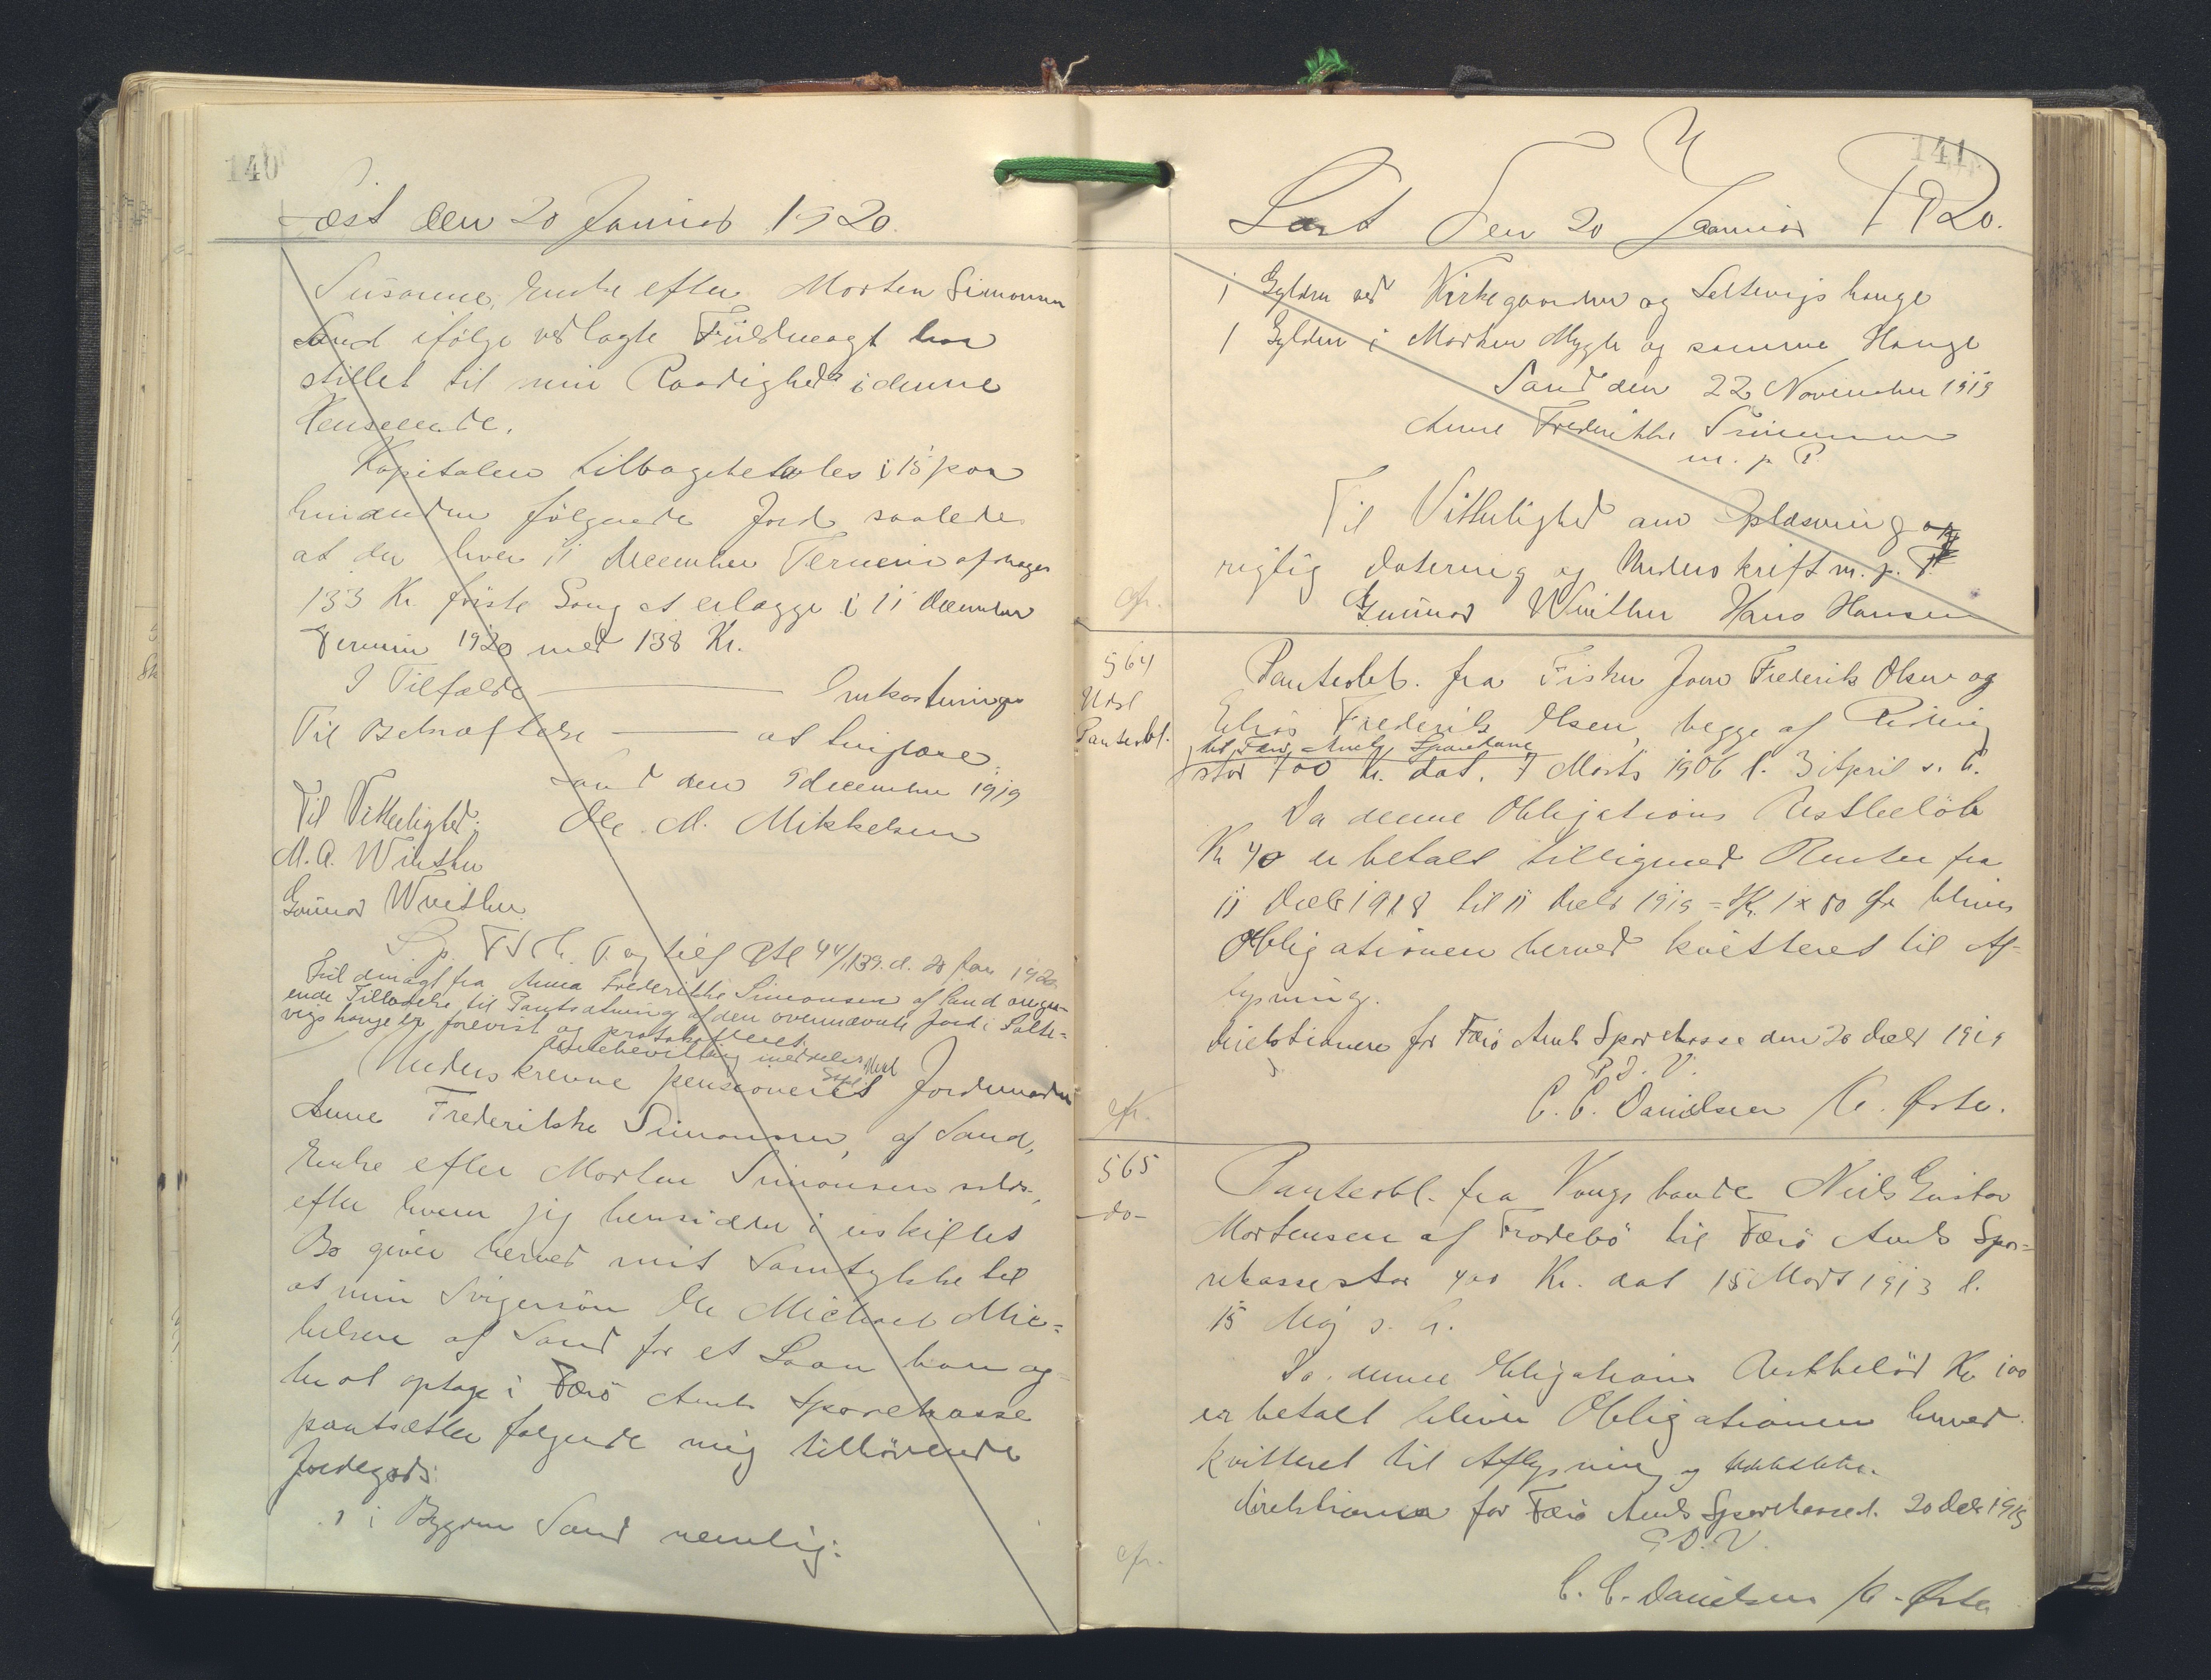 140
Læst den 20 Januar 1920.
Susanne, Enke efter Morten Simonsen
Sand ifølge vedlagte Fuldmagt har
stillet til min Raadighed i denne
Henseende.
Kapitalen tilbagebetales i 15 paa
hinanden følgende Jord saaledes
at der hver 11 December Termin afdrages
133 Kr. første Gang at erlægge i 11 December
Termin 1920 med 138 Kr.
I Tilfælde ——— Omkostninger
Til Bekræftelse ——— at tinglæse.
Sand den 9 December 1919
Til Vitterlighed: Ole M. Mikkelsen
M. A. Winther
Gunnar Winther
44/1139. d. 20 Jan 1920
Fuldmagt fra Anna Frederikke Simonsen af Sand angaa-
ende Tilladelse til Pantsætning af den ovennævnte Jord i Salte-
vigs hauge er forevist og protokolleret.
Underskrevne pensioneret Jordemoder
Anne Frederikke Simonsen, af Sand,
Enke efter Morten Simonsen
efter hvem jeg hensidder i uskiftet
Bo giver herved mit Samtykke til
at min Svigersøn Ole Michael Mic=
kelsen af Sand for et Laan han og
har at optage i Færø Amts Sparekasse
pantsætter følgende mig tilhørende
Jordegods:
1 i Bygden Sand nemlig:
141
Læst Den 20 Januar 1920.
1 Gylden ved Kirkegaarden og Saltevigs hauge
1 Gylden i Morten Mygle og samme Hauge
Sand den 22 November 1919
Anne Frederikke Simonsen
m. p. P.
Til Vitterlighed om Oplæsning og
rigtig Datering og Underskrift m. p. P.
cfr.
Gunnar Winther Hans Hansen
564
Udsl
Panteobl.
Panteobl. fra Fisker Joen Frederik Olsen og
Elias Frederik Olsen, begge af
til Færø Amts Sparekasse
stor 400 Kr. dat. 7 Marts 1906 l. 3 April s. A.
Da denne Obligations Restbeløb
Kr 40 er betalt tilligemed Renter fra
11 Decbr 1918 til 11 Decbr 1919 = Kr. 1 x 80 Ør bliver
Obligationen herved kvitteret til Af-
lysning.
Direktionen for Færø Amts Sparekasse den 20 Decbr 1919
P. D. V.
C. C. Danielsen /C. Øste.
cfr.
565
-do-
Panteobl. fra Kongsbonde Niels Gustav
Mortensen af Frodebø til Færø Amts Spa=
rekasse stor 400 Kr. dat 15 Marts 1913 l.
15 Maj s. A.
Da denne Obligations Restbeløb Kr 100
er betalt bliver Obligationen herved
kvitteret til Aflysning og Udslettelse.
Direktionen for Færø Amts Sparekasse d. 20 Decbr 1919
P. D. V.
cfr.
C. C. Danielsen /C. Øste